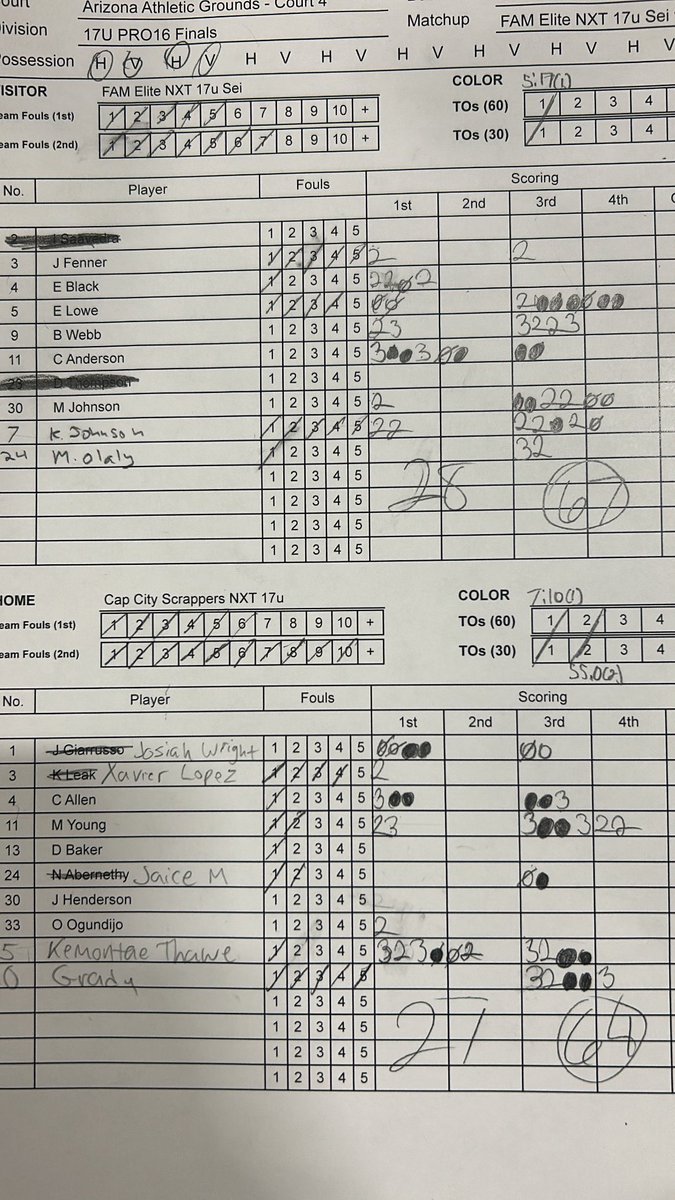 Court Arizona Athletic Grounds - Court 4
Division 17U PRO16 Finals Matchup FAM Elite NXT 17u Sei
Possession H V H V H V H V H V H V H V
VISITOR FAM Elite NXT 17u Sei COLOR 5:17(1)
Team Fouls (1st) 1 2 3 4 5 6 7 8 9 10 + TOs (60) 1 2 3 4
Team Fouls (2nd) 1 2 3 4 5 6 7 8 9 10 + TOs (30) 1 2 3 4
No. Player Fouls Scoring
1st 2nd 3rd 4th
2 J Saavedra 1 2 3 4 5
3 J Fenner 1 2 3 4 5 2 2
4 E Black 1 2 3 4 5 2202
5 E Lowe 1 2 3 4 5 00 2
9 B Webb 1 2 3 4 5 23 3223
11 C Anderson 1 2 3 4 5 3 3
29 D Thompson 1 2 3 4 5
30 M Johnson 1 2 3 4 5 2 2200
7 K. Johnson 1 2 3 4 5 22 22 20
24 M. Olaly 1 2 3 4 5 32
1 2 3 4 5
1 2 3 4 5 28 67
1 2 3 4 5
1 2 3 4 5
HOME Cap City Scrappers NXT 17u COLOR 7:10(1)
Team Fouls (1st) 1 2 3 4 5 6 7 8 9 10 + TOs (60) 1 2 3 4
Team Fouls (2nd) 1 2 3 4 5 6 7 8 9 10 + TOs (30) 1 2 3 4
55.0(2)
No. Player Fouls Scoring
1st 2nd 3rd 4th
1 J Giarrusso Josiah Wright 1 2 3 4 5 00 00
3 K Leak Xavier Lopez 1 2 3 4 5 2
4 C Allen 1 2 3 4 5 3 3
11 M Young 1 2 3 4 5 23 3 322
13 D Baker 1 2 3 4 5
24 N Abernethy Jaice M 1 2 3 4 5 0
30 J Henderson 1 2 3 4 5
33 O Ogundijo 1 2 3 4 5 2
5 Kemontae Thawe 1 2 3 4 5 323 02 32
0 Grady 1 2 3 4 5 32 3
1 2 3 4 5
1 2 3 4 5 27 64
1 2 3 4 5
1 2 3 4 5